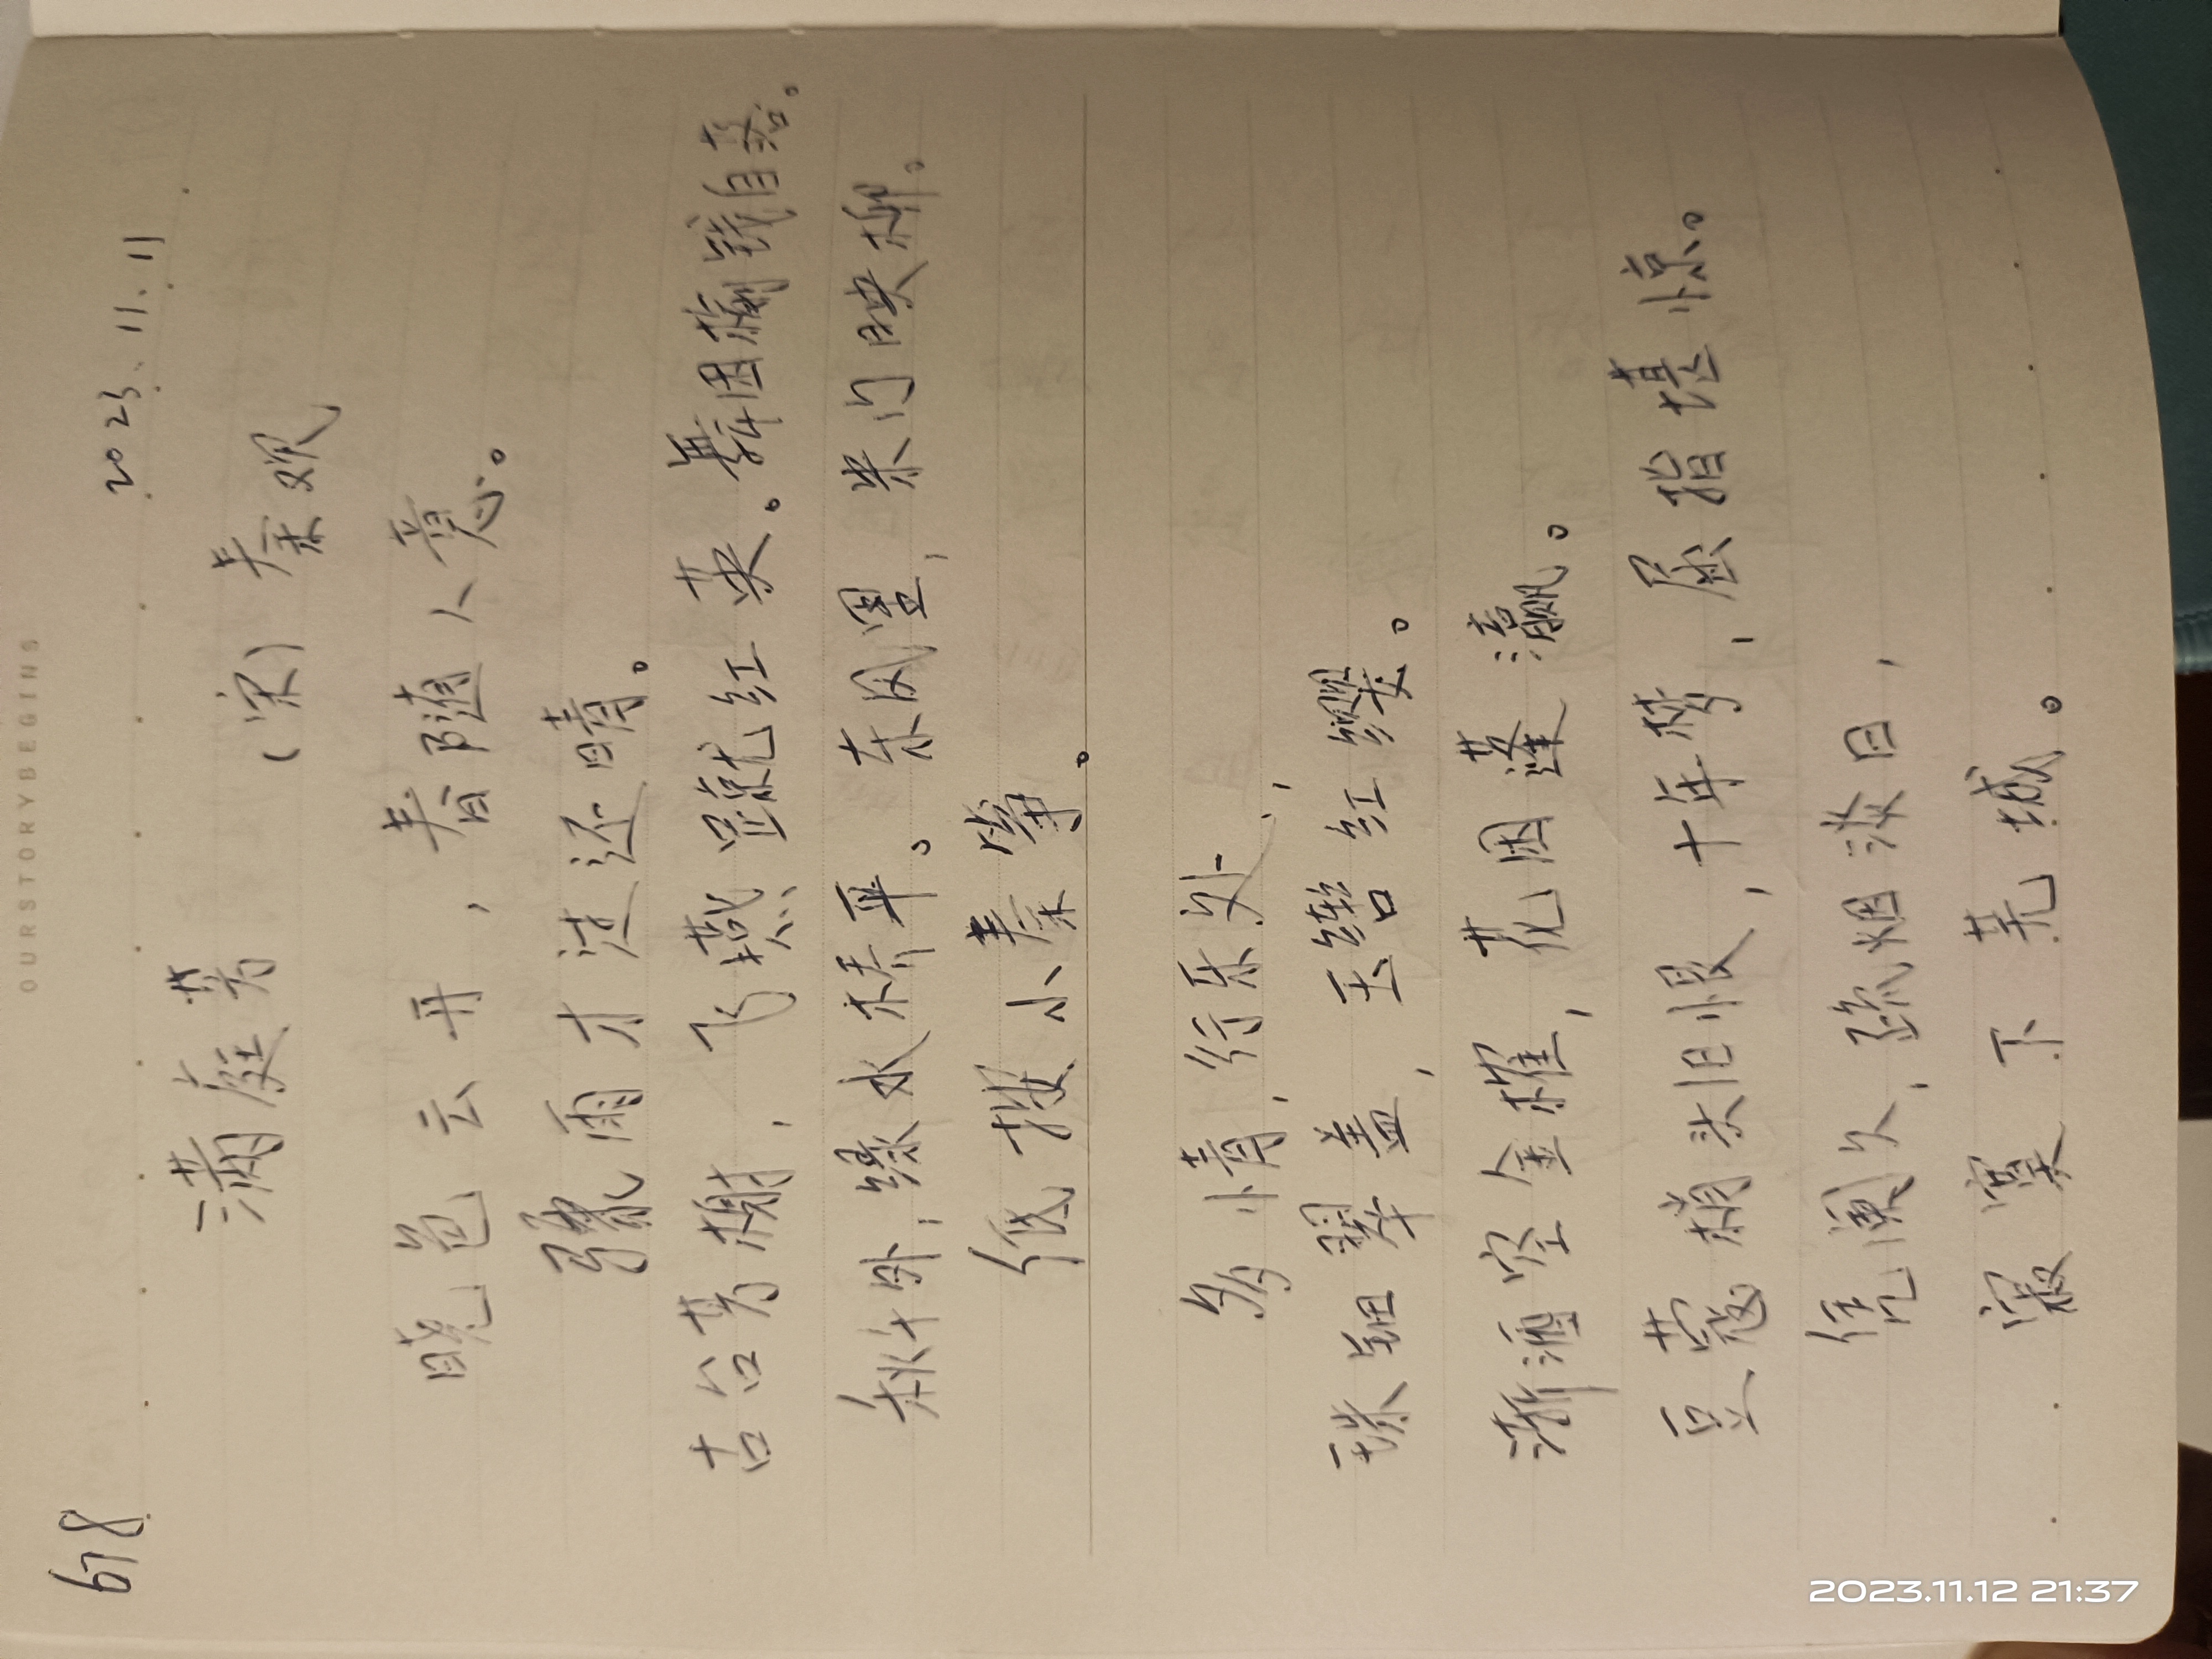 OURSTORYBEGINS
678
2023.11.11
满庭芳
（宋）秦观
晓色云开，春随人意。
骤雨才过还晴。
古台芳榭，飞燕蹴红英。舞困榆钱自落。
秋千外，绿水桥平。东风里，朱门映柳。
低按小秦筝。
多情，行乐处，
珠钿翠盖，玉辔红缨。
渐酒空金榷，花困蓬瀛。
豆蔻梢头旧恨，十年梦，屈指堪惊。
凭阑久，疏烟淡日，
寂寞下芜城。
2023.11.12 21:37